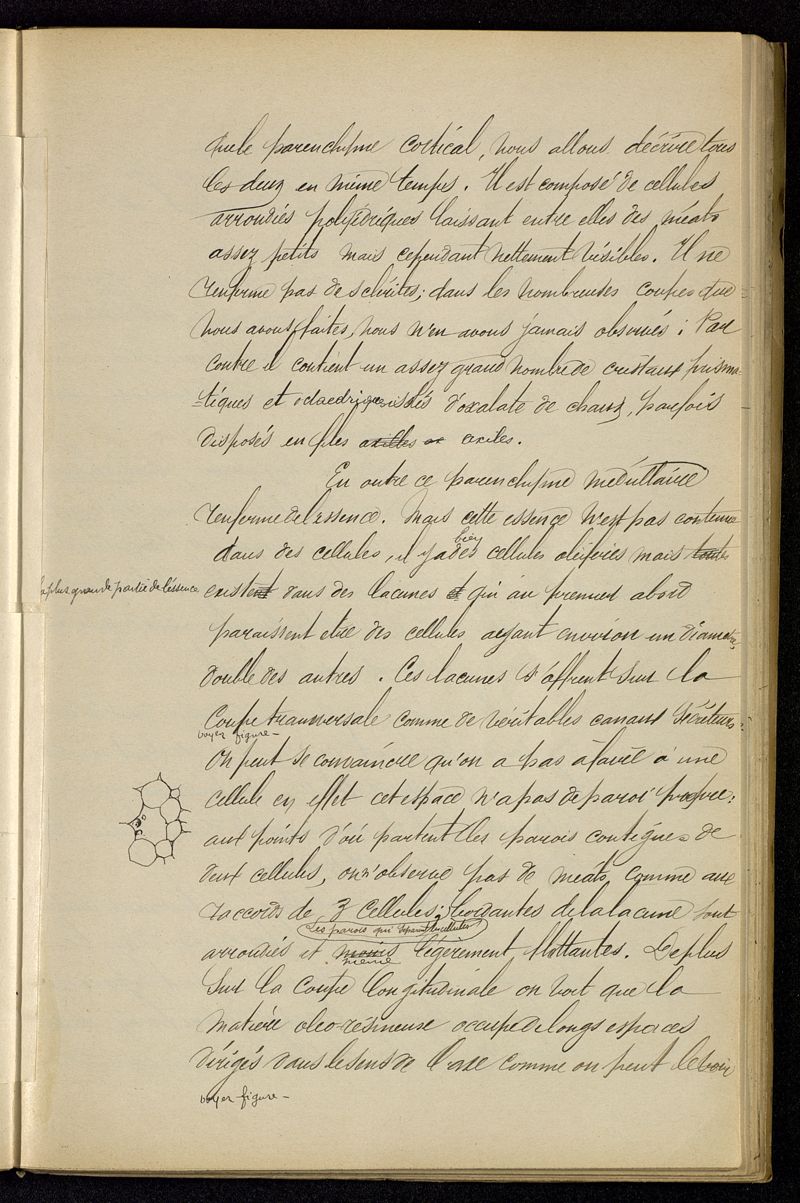 que le parenchyme cortical, nous allons décrire tous
les deux en même temps. Il est composé de cellules
arrondies polyédriques laissant entre elles des méats
assez petits mais cependant nettement visibles. Il ne
renferme pas de sclérites; dans les nombreuses coupes que
nous avons faites, nous n'en avons jamais observés; Par
contre il contient un assez grand nombre de cristaux prisma-
-tiques et octaedriques isolés d'oxalate de chaux, parfois
disposés en files axilles ou axiles.
En outre ce parenchyme médullaire
renferme de l'essence. Mais cette essence n'est pas contenue
dans des cellules, il y a bien des cellules oléifères mais toutes
la plus grande partie de l'essence existent dans des lacunes et qui au premier abord
paraissent etre des cellules ayant environ un diamètre
double des autres. Ces lacunes s'offrent sur la
Coupe transversale comme de véritables canaux sécréteurs.
voyez figure -
On peut se convaincre qu'on a pas affaire à une
cellule en effet cet espace n'a pas de paroi propre:
aux points d'où partent les parois contigues de
deux cellules, on n'observe pas de méats, comme aux
raccords de 3 cellules; bordantes de la lacune sont
Les parois qui séparent les cellules
arrondies et moins légèrement flottantes. De plus
même
Sur la coupe longitudinale on voit que la
matière oléo-résineuse occupe de longs espaces
dirigés dans le sens de l'axe comme on peut le voir
voyez figure -